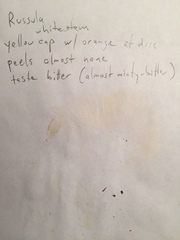 Russula
white stem
yellow cap w/ orange at disc
peels almost none
taste bitter (almost minty-bitter)